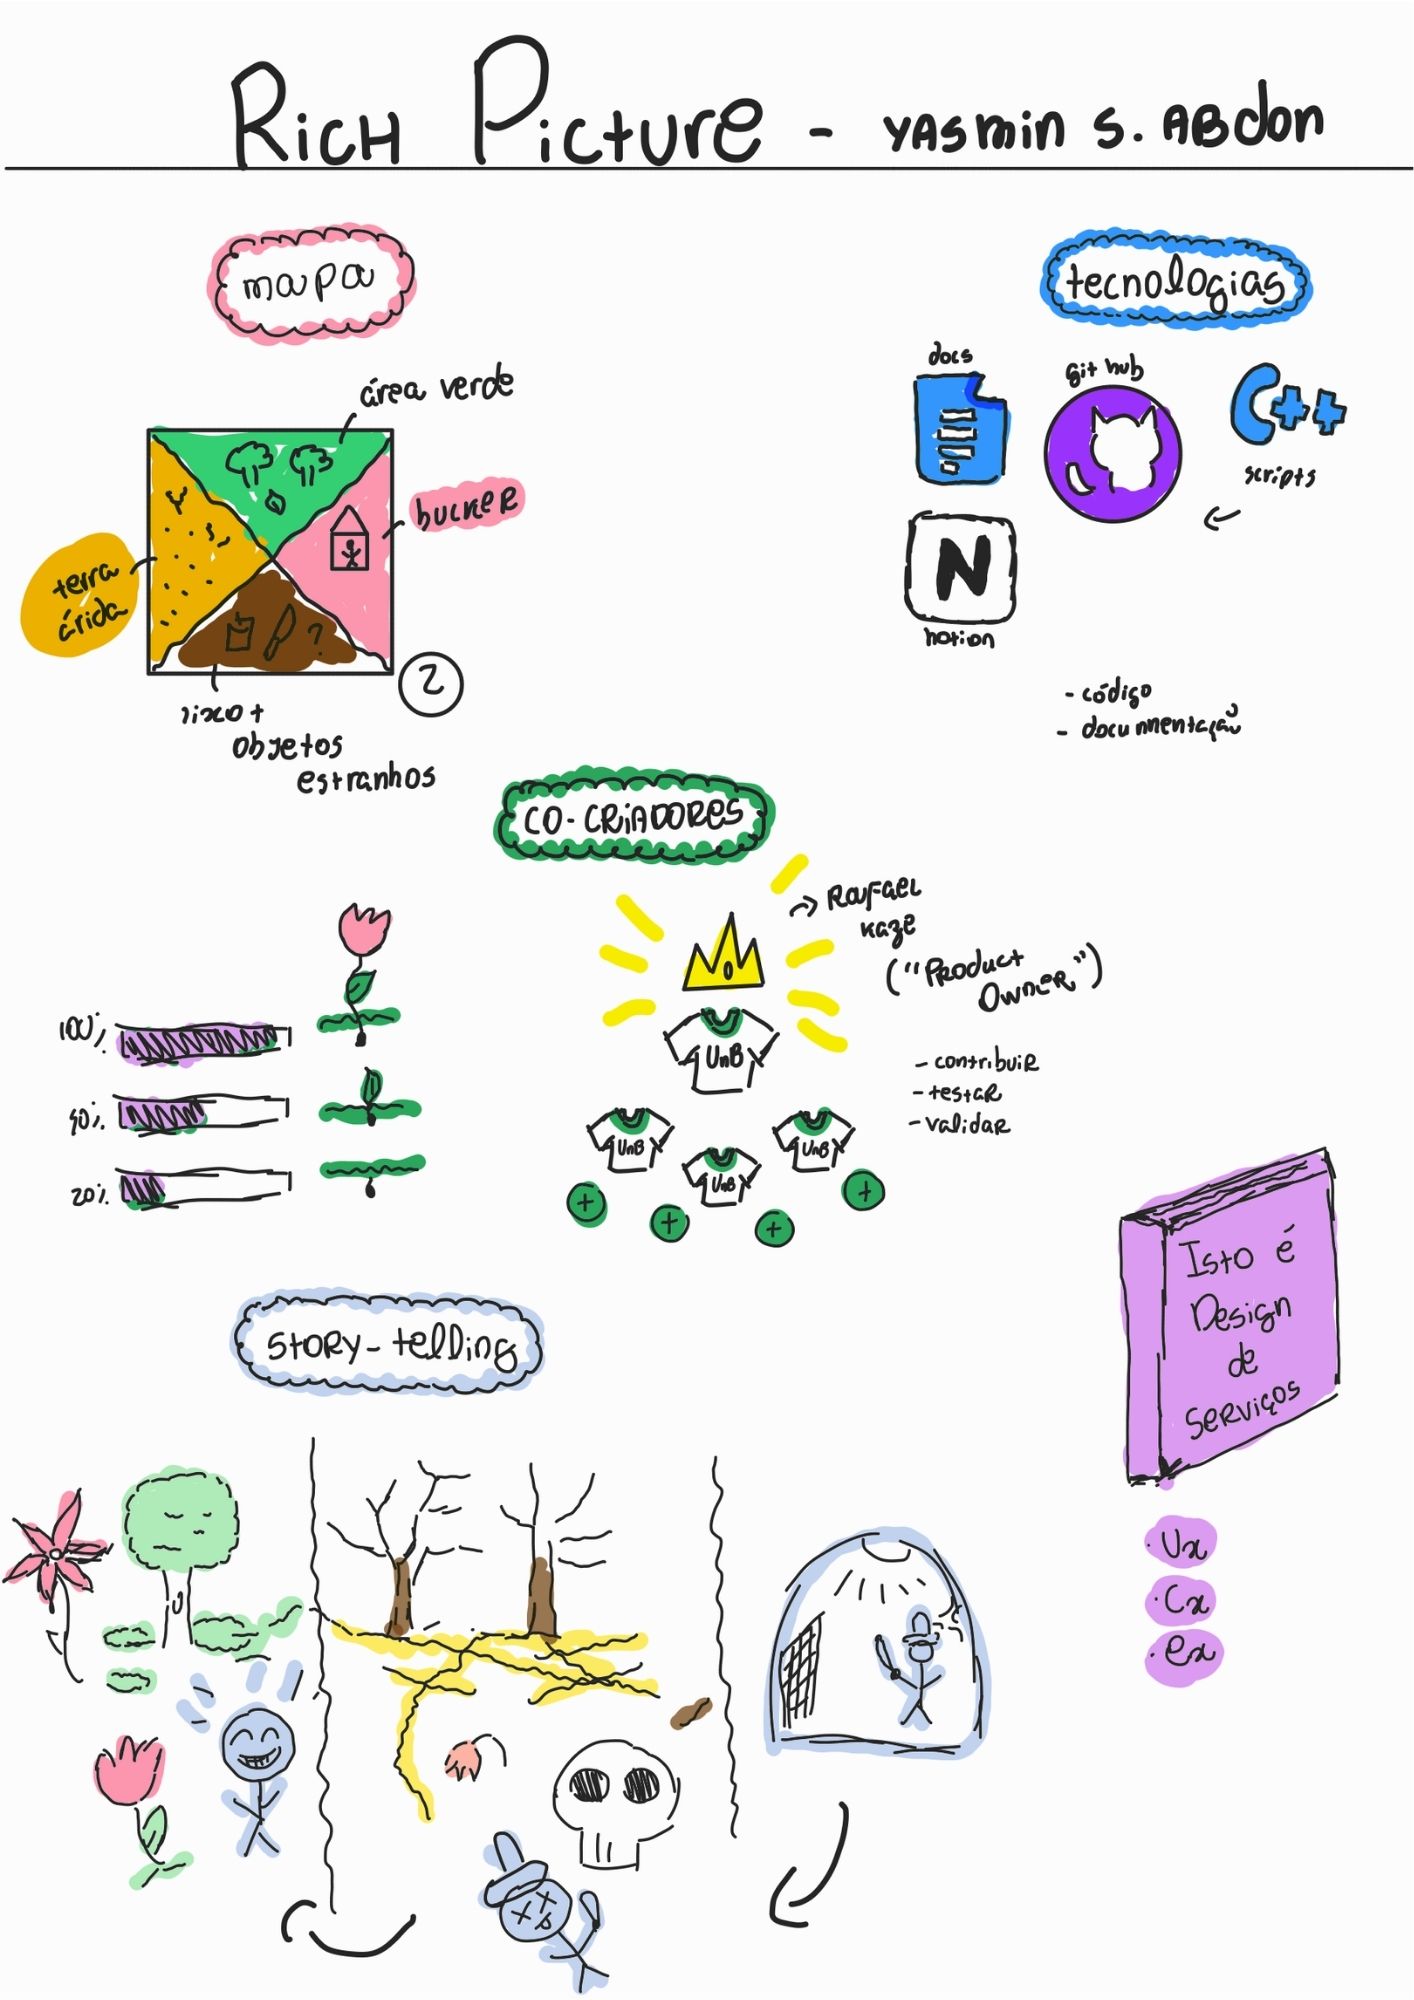 RicH PicturE - YAsmin S. ABdon
mapa
tecnologias
área verde
bucker
terra
árida
lixo +
objetos
estranhos
2
?
docs
git hub
C++
scripts
N
notion
- código
- documentação
CO-CRiADORES
RAFAEL
KAZE
("PRODUCT
OWNER")
UnB
UnB
UnB
UnB
+
+
+
+
- contribuir
- testar
- validar
100%
20%
Isto é
Design
de
Serviços
. Ux
. Cx
. ex
STORY-telling